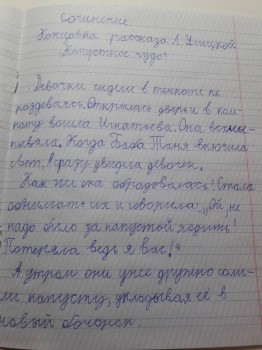 Сочинение.
Концовка рассказа Л. Улицкой
"Капустное чудо"
Девочки сидели в темноте не
раздеваясь. Открылась дверь и в ком-
нату вошла Игнатьева. Она
Когда Баба Таня включила
свет, сразу увидела девочек.
Как же она обрадовалась! Стала
обнимать их и говорила: "Ой, не
надо было за капустой ходить!
Потеряла ведь я вас!"
А утром они уже дружно соли-
ли капусту, укладывая её в
новый бочонок.